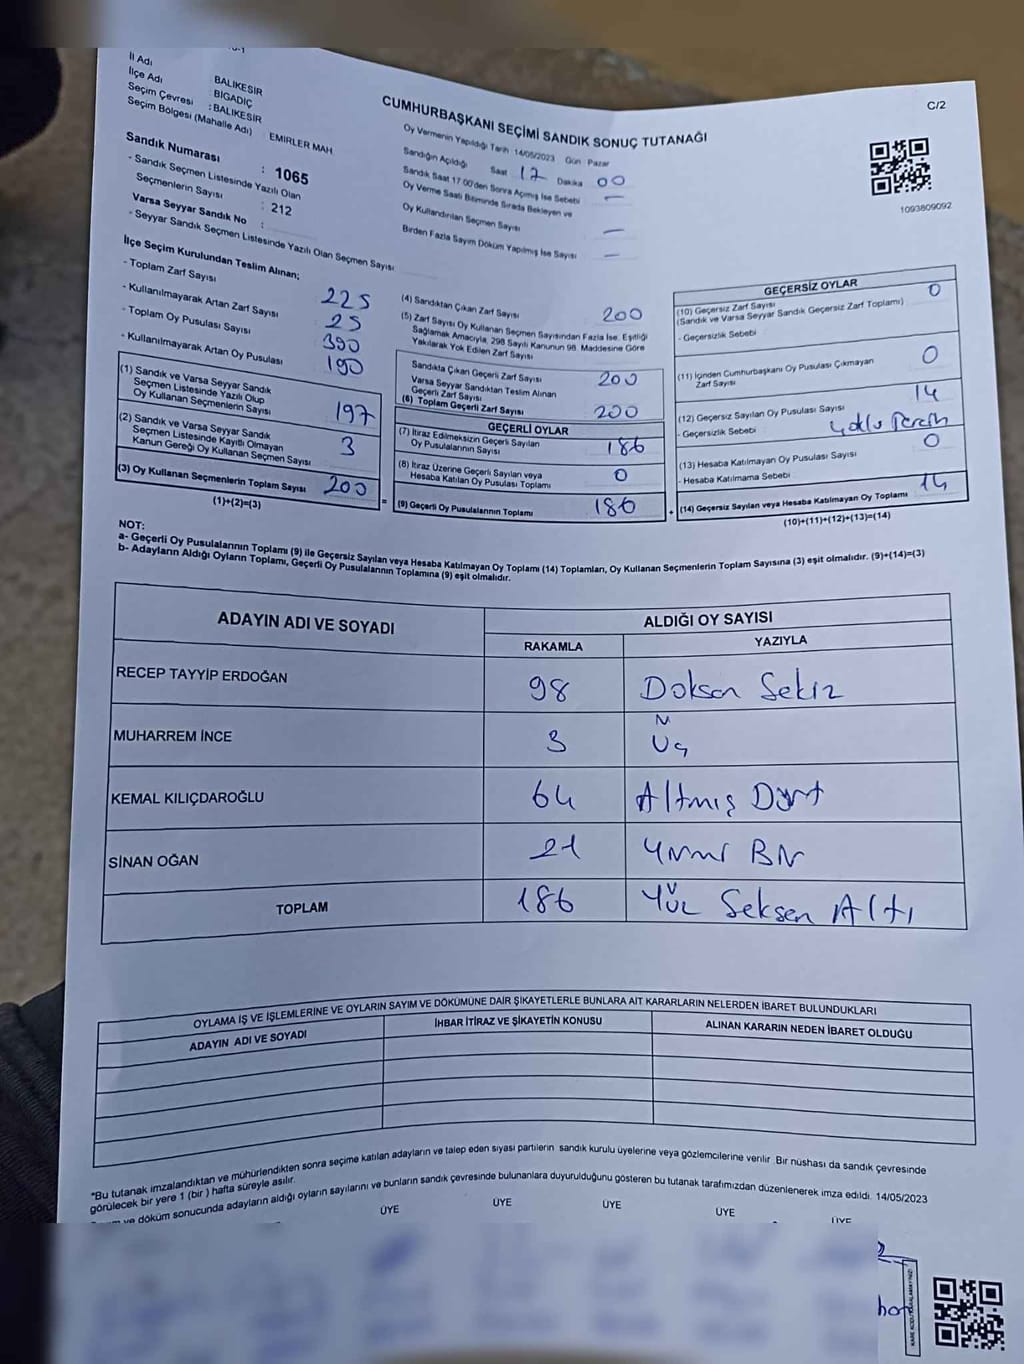 İl Adı BALIKESİR
İlçe Adı BİGADİÇ
Seçim Çevresi : BALIKESİR
Seçim Bölgesi (Mahalle Adı) EMİRLER MAH
Sandık Numarası : 1065
- Sandık Seçmen Listesinde Yazılı Olan
Seçmenlerin Sayısı : 212
Varsa Seyyar Sandık No :
- Seyyar Sandık Seçmen Listesinde Yazılı Olan Seçmen Sayısı
C/2
CUMHURBAŞKANI SEÇİMİ SANDIK SONUÇ TUTANAĞI
Oy Vermenin Yapıldığı Tarih 14/05/2023 Gün : Pazar
Sandığın Açıldığı Saat 17 Dakika 00
Sandık Saat 17.00'den Sonra Açılmış İse Sebebi —
Oy Verme Saati Bitiminde Sırada Bekleyen ve
Oy Kullandırılan Seçmen Sayısı —
Birden Fazla Sayım Döküm Yapılmış İse Sayısı —
1093809092
İlçe Seçim Kurulundan Teslim Alınan;
- Toplam Zarf Sayısı 225
- Kullanılmayarak Artan Zarf Sayısı 25
- Toplam Oy Pusulası Sayısı 390
- Kullanılmayarak Artan Oy Pusulası 190
(1) Sandık ve Varsa Seyyar Sandık
Seçmen Listesinde Yazılı Olup
Oy Kullanan Seçmenlerin Sayısı 197
(2) Sandık ve Varsa Seyyar Sandık
Seçmen Listesinde Kayıtlı Olmayan
Kanun Gereği Oy Kullanan Seçmen Sayısı 3
(3) Oy Kullanan Seçmenlerin Toplam Sayısı 200
(1)+(2)=(3)
(4) Sandıktan Çıkan Zarf Sayısı 200
(5) Zarf Sayısı Oy Kullanan Seçmen Sayısından Fazla İse, Eşitliği
Sağlamak Amacıyla, 298 Sayılı Kanunun 98. Maddesine Göre
Yakılarak Yok Edilen Zarf Sayısı
Sandıkta Çıkan Geçerli Zarf Sayısı 200
Varsa Seyyar Sandıktan Teslim Alınan
Geçerli Zarf Sayısı
(6) Toplam Geçerli Zarf Sayısı 200
GEÇERLİ OYLAR
(7) İtiraz Edilmeksizin Geçerli Sayılan
Oy Pusulalarının Sayısı 186
(8) İtiraz Üzerine Geçerli Sayılan veya
Hesaba Katılan Oy Pusulası Toplamı 0
= (9) Geçerli Oy Pusulalarının Toplamı 186
GEÇERSİZ OYLAR
(10) Geçersiz Zarf Sayısı 0
(Sandık ve Varsa Seyyar Sandık Geçersiz Zarf Toplamı)
- Geçersizlik Sebebi
(11) İçinden Cumhurbaşkanı Oy Pusulası Çıkmayan
Zarf Sayısı 0
(12) Geçersiz Sayılan Oy Pusulası Sayısı 14
- Geçersizlik Sebebi
(13) Hesaba Katılmayan Oy Pusulası Sayısı 0
- Hesaba Katılmama Sebebi
+ (14) Geçersiz Sayılan veya Hesaba Katılmayan Oy Toplamı 14
(10)+(11)+(12)+(13)=(14)
NOT:
a- Geçerli Oy Pusulalarının Toplamı (9) ile Geçersiz Sayılan veya Hesaba Katılmayan Oy Toplamı (14) Toplamları, Oy Kullanan Seçmenlerin Toplam Sayısına (3) eşit olmalıdır. (9)+(14)=(3)
b- Adayların Aldığı Oyların Toplamı, Geçerli Oy Pusulalarının Toplamına (9) eşit olmalıdır.
ADAYIN ADI VE SOYADI ALDIĞI OY SAYISI
RAKAMLA YAZIYLA
RECEP TAYYİP ERDOĞAN 98 Doksan Sekiz
MUHARREM İNCE 3 Üç
KEMAL KILIÇDAROĞLU 64 Altmış Dört
SİNAN OĞAN 21 Yirmi Bir
TOPLAM 186 Yüz Seksen Altı
OYLAMA İŞ VE İŞLEMLERİNE VE OYLARIN SAYIM VE DÖKÜMÜNE DAİR ŞİKAYETLERLE BUNLARA AİT KARARLARIN NELERDEN İBARET BULUNDUKLARI
ADAYIN ADI VE SOYADI İHBAR İTİRAZ VE ŞİKAYETİN KONUSU ALINAN KARARIN NEDEN İBARET OLDUĞU
*Bu tutanak imzalandıktan ve mühürlendikten sonra seçime katılan adayların ve talep eden siyasi partilerin sandık kurulu üyelerine veya gözlemcilerine verilir. Bir nüshası da sandık çevresinde
görülecek bir yere 1 (bir) hafta süreyle asılır.
ve döküm sonucunda adayların aldığı oyların sayılarını ve bunların sandık çevresinde bulunanlara duyurulduğunu gösteren bu tutanak tarafımızdan düzenlenerek imza edildi. 14/05/2023
ÜYE ÜYE ÜYE ÜYE ÜYE